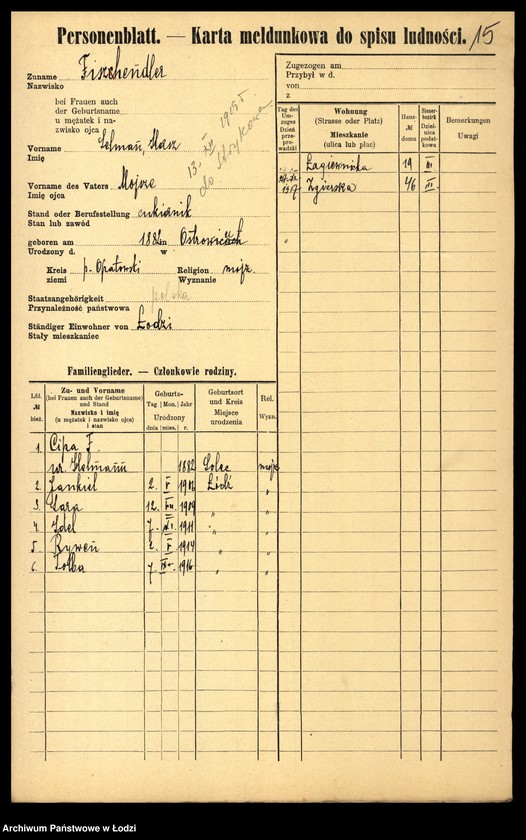 Personenblatt. — Karta meldunkowa do spisu ludności. 15
Zuname Fischendler
Nazwisko
bei Frauen auch
der Geburtsname
u mężatek i na-
zwisko ojca
Vorname
Imię
13. XII 1919 r.
do Strykowa
Vorname des Vaters Mojsze
Imię ojca
Stand oder Berufsstellung cukiernik
Stan lub zawód
geboren am 1882 in
Urodzony d. w
Kreis p. Opatowski Religion mojż.
ziemi Wyznanie
Staatsangehörigkeit polska
Przynależność państwowa
Ständiger Einwohner von Łodzi
Stały mieszkaniec
Zugezogen am
Przybył w d.
von
z
Tag des Um-zuges Dzień prze-prowadzki
Wohnung
(Strasse oder Platz)
Mieszkanie
(ulica lub plac)
Haus- № domu
Steuer-bezirk Dziel-nica podat-kowa
Bemerkungen
Uwagi
Łagiewnicka 19 III
1917 Zgierska 46 III
Familienglieder. — Członkowie rodziny.
Lfd. № bież.
Zu- und Vorname
(bei Frauen auch der Geburtsname)
und Stand
Nazwisko i imię
(u mężatek i nazwisko ojca)
i stan
Geburts-
Tag Mon. Jahr
Urodzony
dnia mies. r.
Geburtsort
und Kreis
Miejsce
urodzenia
Rel.
Wyzn.
1. Cipa F.
ur. Helmann 1882 Solec mojż
2. Jankiel 2. V Łódź "
3. Sara 12. 1909 " "
4. Idel 7. 1911 " "
5. Rywen 2. V 1914 " "
6. 7. 1916 " "
Archiwum Państwowe w Łodzi